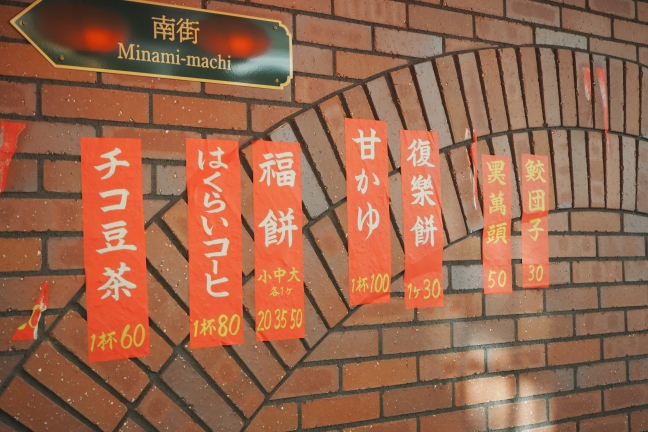 南街
Minami-machi
チコ豆茶
1杯60
はくらいコーヒ
1杯80
福餅
小中大
各1ヶ
20 35 50
甘かゆ
1杯100
復樂餅
1ヶ30
黑萬頭
50
鮫団子
30